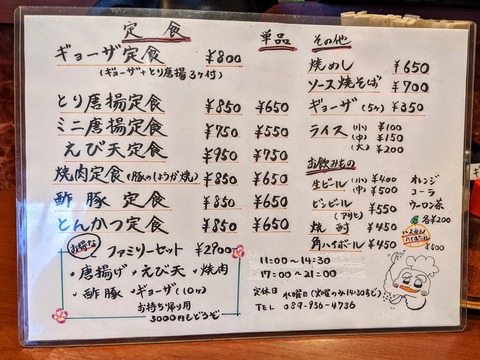 定食 単品 その他
ギョーザ定食 ¥800
(ギョーザ+とり唐揚3ヶ付)
とり唐揚定食 ¥850 ¥650
ミニ唐揚定食 ¥750 ¥550
えび天定食 ¥950 ¥750
焼肉定食(豚のしょうが焼) ¥850 ¥650
酢豚定食 ¥850 ¥650
とんかつ定食 ¥850 ¥650
お得な ファミリーセット ¥2900
・唐揚げ ・えび天 ・焼肉
・酢豚 ・ギョーザ(10ヶ)
お持ち帰り用
3000円しどうぞ
焼めし ¥650
ソース焼そば ¥700
ギョーザ(5ヶ) ¥350
ライス (小) ¥100
(中) ¥150
(大) ¥200
お飲みもの
生ビール (小) ¥400
(中) ¥500
ビンビール (アサヒ) ¥550
焼酎 ¥450
角ハイボール ¥450
オレンジ
コーラ
ウーロン茶
各¥200
¥500
11:00〜14:30
17:00〜21:00
定休日 水曜日(火曜のみ14:30まで)
TEL 089-956-4736